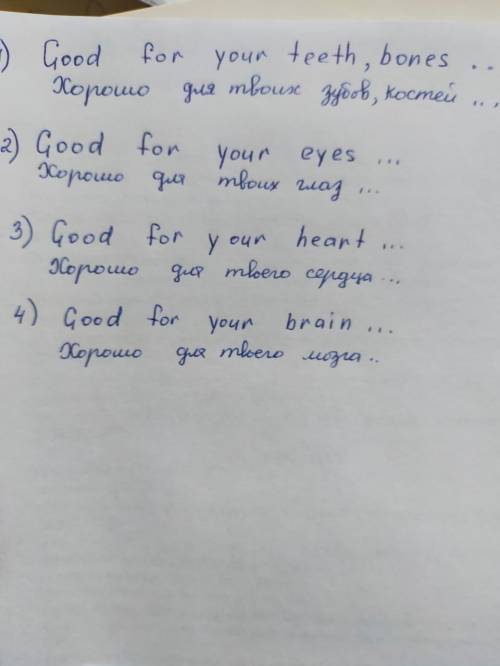 1) Good for your teeth, bones ...
Хорошо для твоих зубов, костей ...
2) Good for your eyes ...
Хорошо для твоих глаз ...
3) Good for your heart ...
Хорошо для твоего сердца ...
4) Good for your brain ...
Хорошо для твоего мозга ..